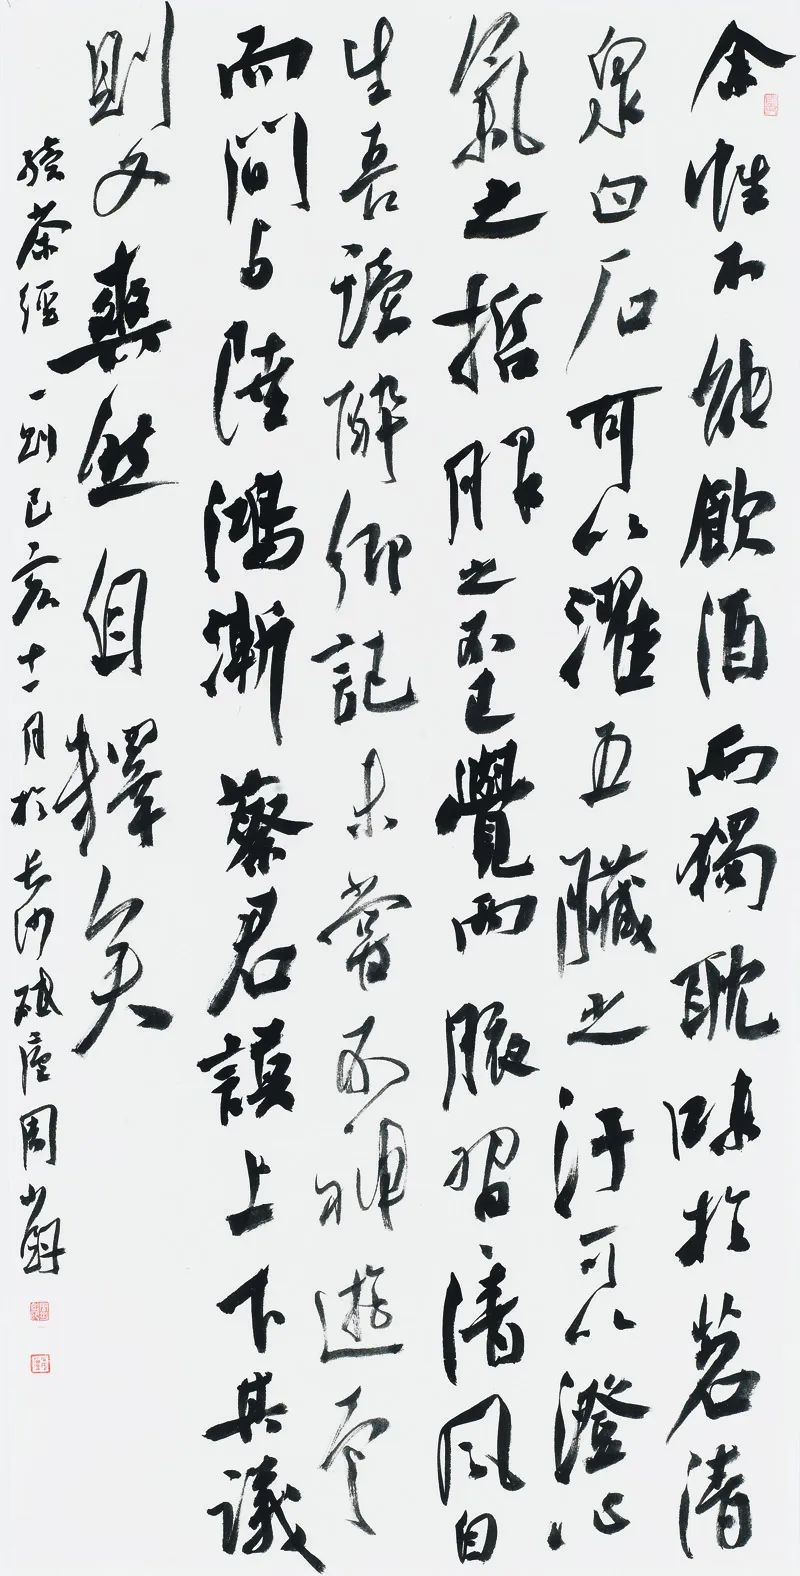 余性不能飲酒而獨耽味於茗清
泉白石可以濯五臟之汙可以澄心
氣之哲服之不已覺兩腋習清風自
生吾讀醉鄉記未嘗不神遊焉
而間与陸鴻漸蔡君謨上下其議
則又爽然自釋矣
續茶經一則己亥十一月於長沙廬周小